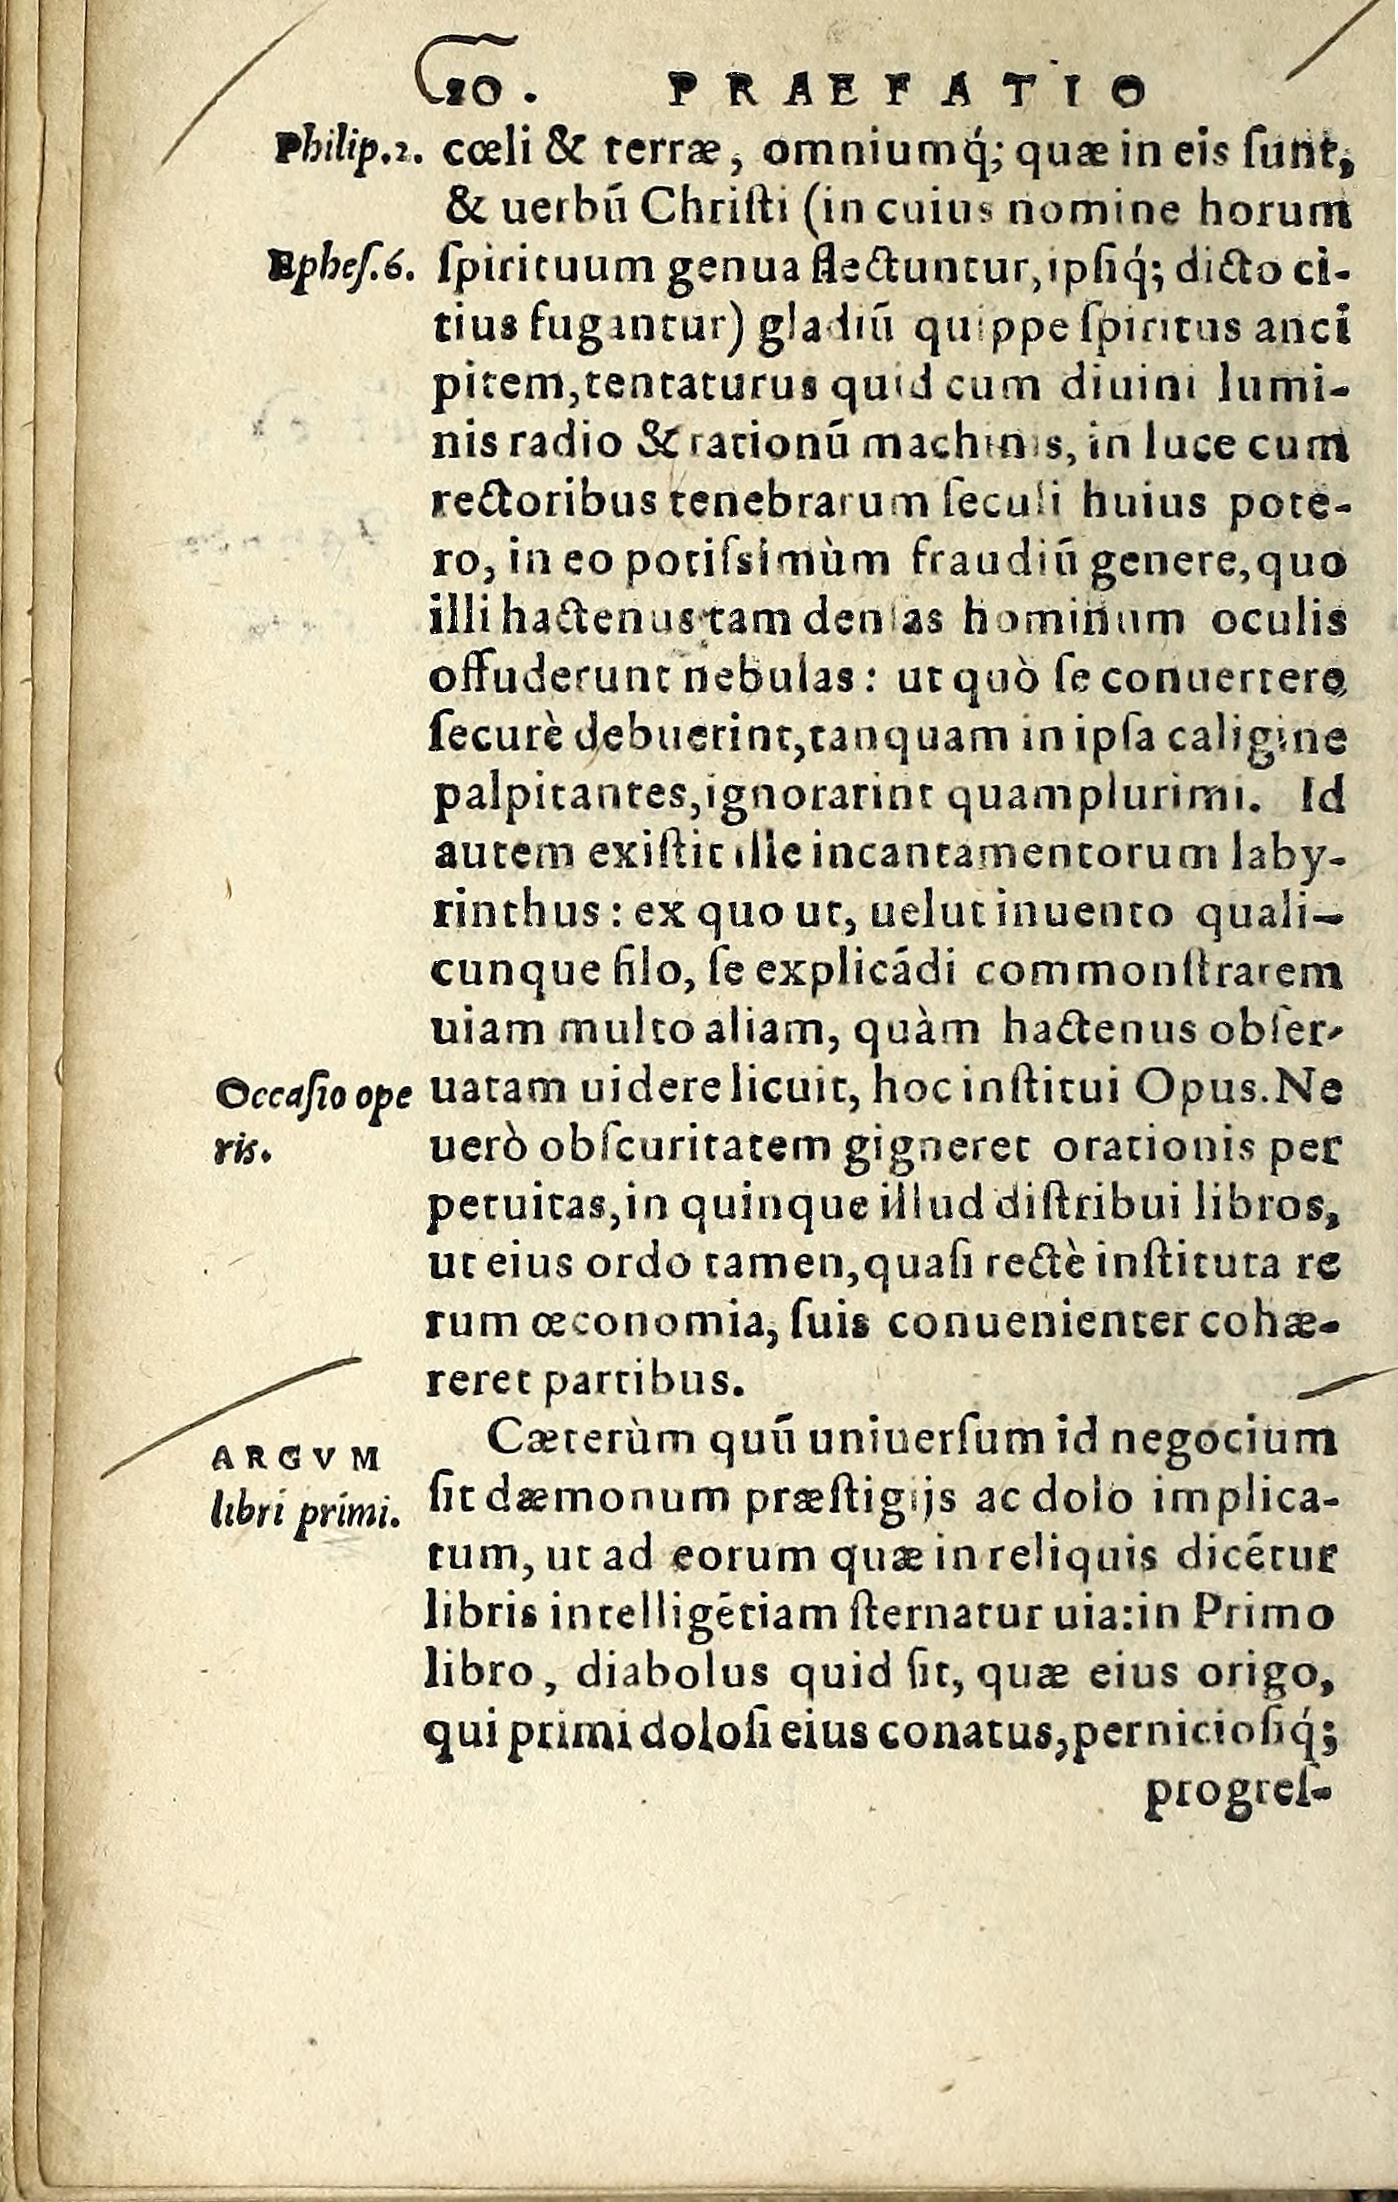 20. PRAEFATIO
Philip.2. cœli & terræ, omniumq́; quæ in eis ſunt,
& uerbū Chriſti (in cuius nomine horum
Epheſ.6. ſpirituum genua flectuntur, ipſiq́; dicto ci-
tius fugantur) gladiū quippe ſpiritus anci
pitem, tentaturus quid cum diuini lumi-
nis radio & rationū machinis, in luce cum
rectoribus tenebrarum ſeculi huius pote-
ro, in eo potiſsimùm fraudiū genere, quo
illi hactenus tam denſas hominum oculis
offuderunt nebulas: ut quò ſe conuertere
ſecurè debuerint, tanquam in ipſa caligine
palpitantes, ignorarint quamplurimi. Id
autem exiſtit ille incantamentorum laby-
rinthus: ex quo ut, uelut inuento quali-
cunque filo, ſe explicādi commonſtrarem
uiam multo aliam, quàm hactenus obſer-
Occaſio ope uatam uidere licuit, hoc inſtitui Opus. Ne
ris. uerò obſcuritatem gigneret orationis per
petuitas, in quinque illud diſtribui libros,
ut eius ordo tamen, quaſi rectè inſtituta re
rum œconomia, ſuis conuenienter cohæ-
reret partibus.
Cæterùm quū uniuerſum id negocium
ARGVM
ſit dæmonum præſtigijs ac dolo implica-
libri primi.
tum, ut ad eorum quæ in reliquis dicētur
libris intelligētiam ſternatur uia: in Primo
libro, diabolus quid ſit, quæ eius origo,
qui primi doloſi eius conatus, pernicioſiq́;
progreſ-